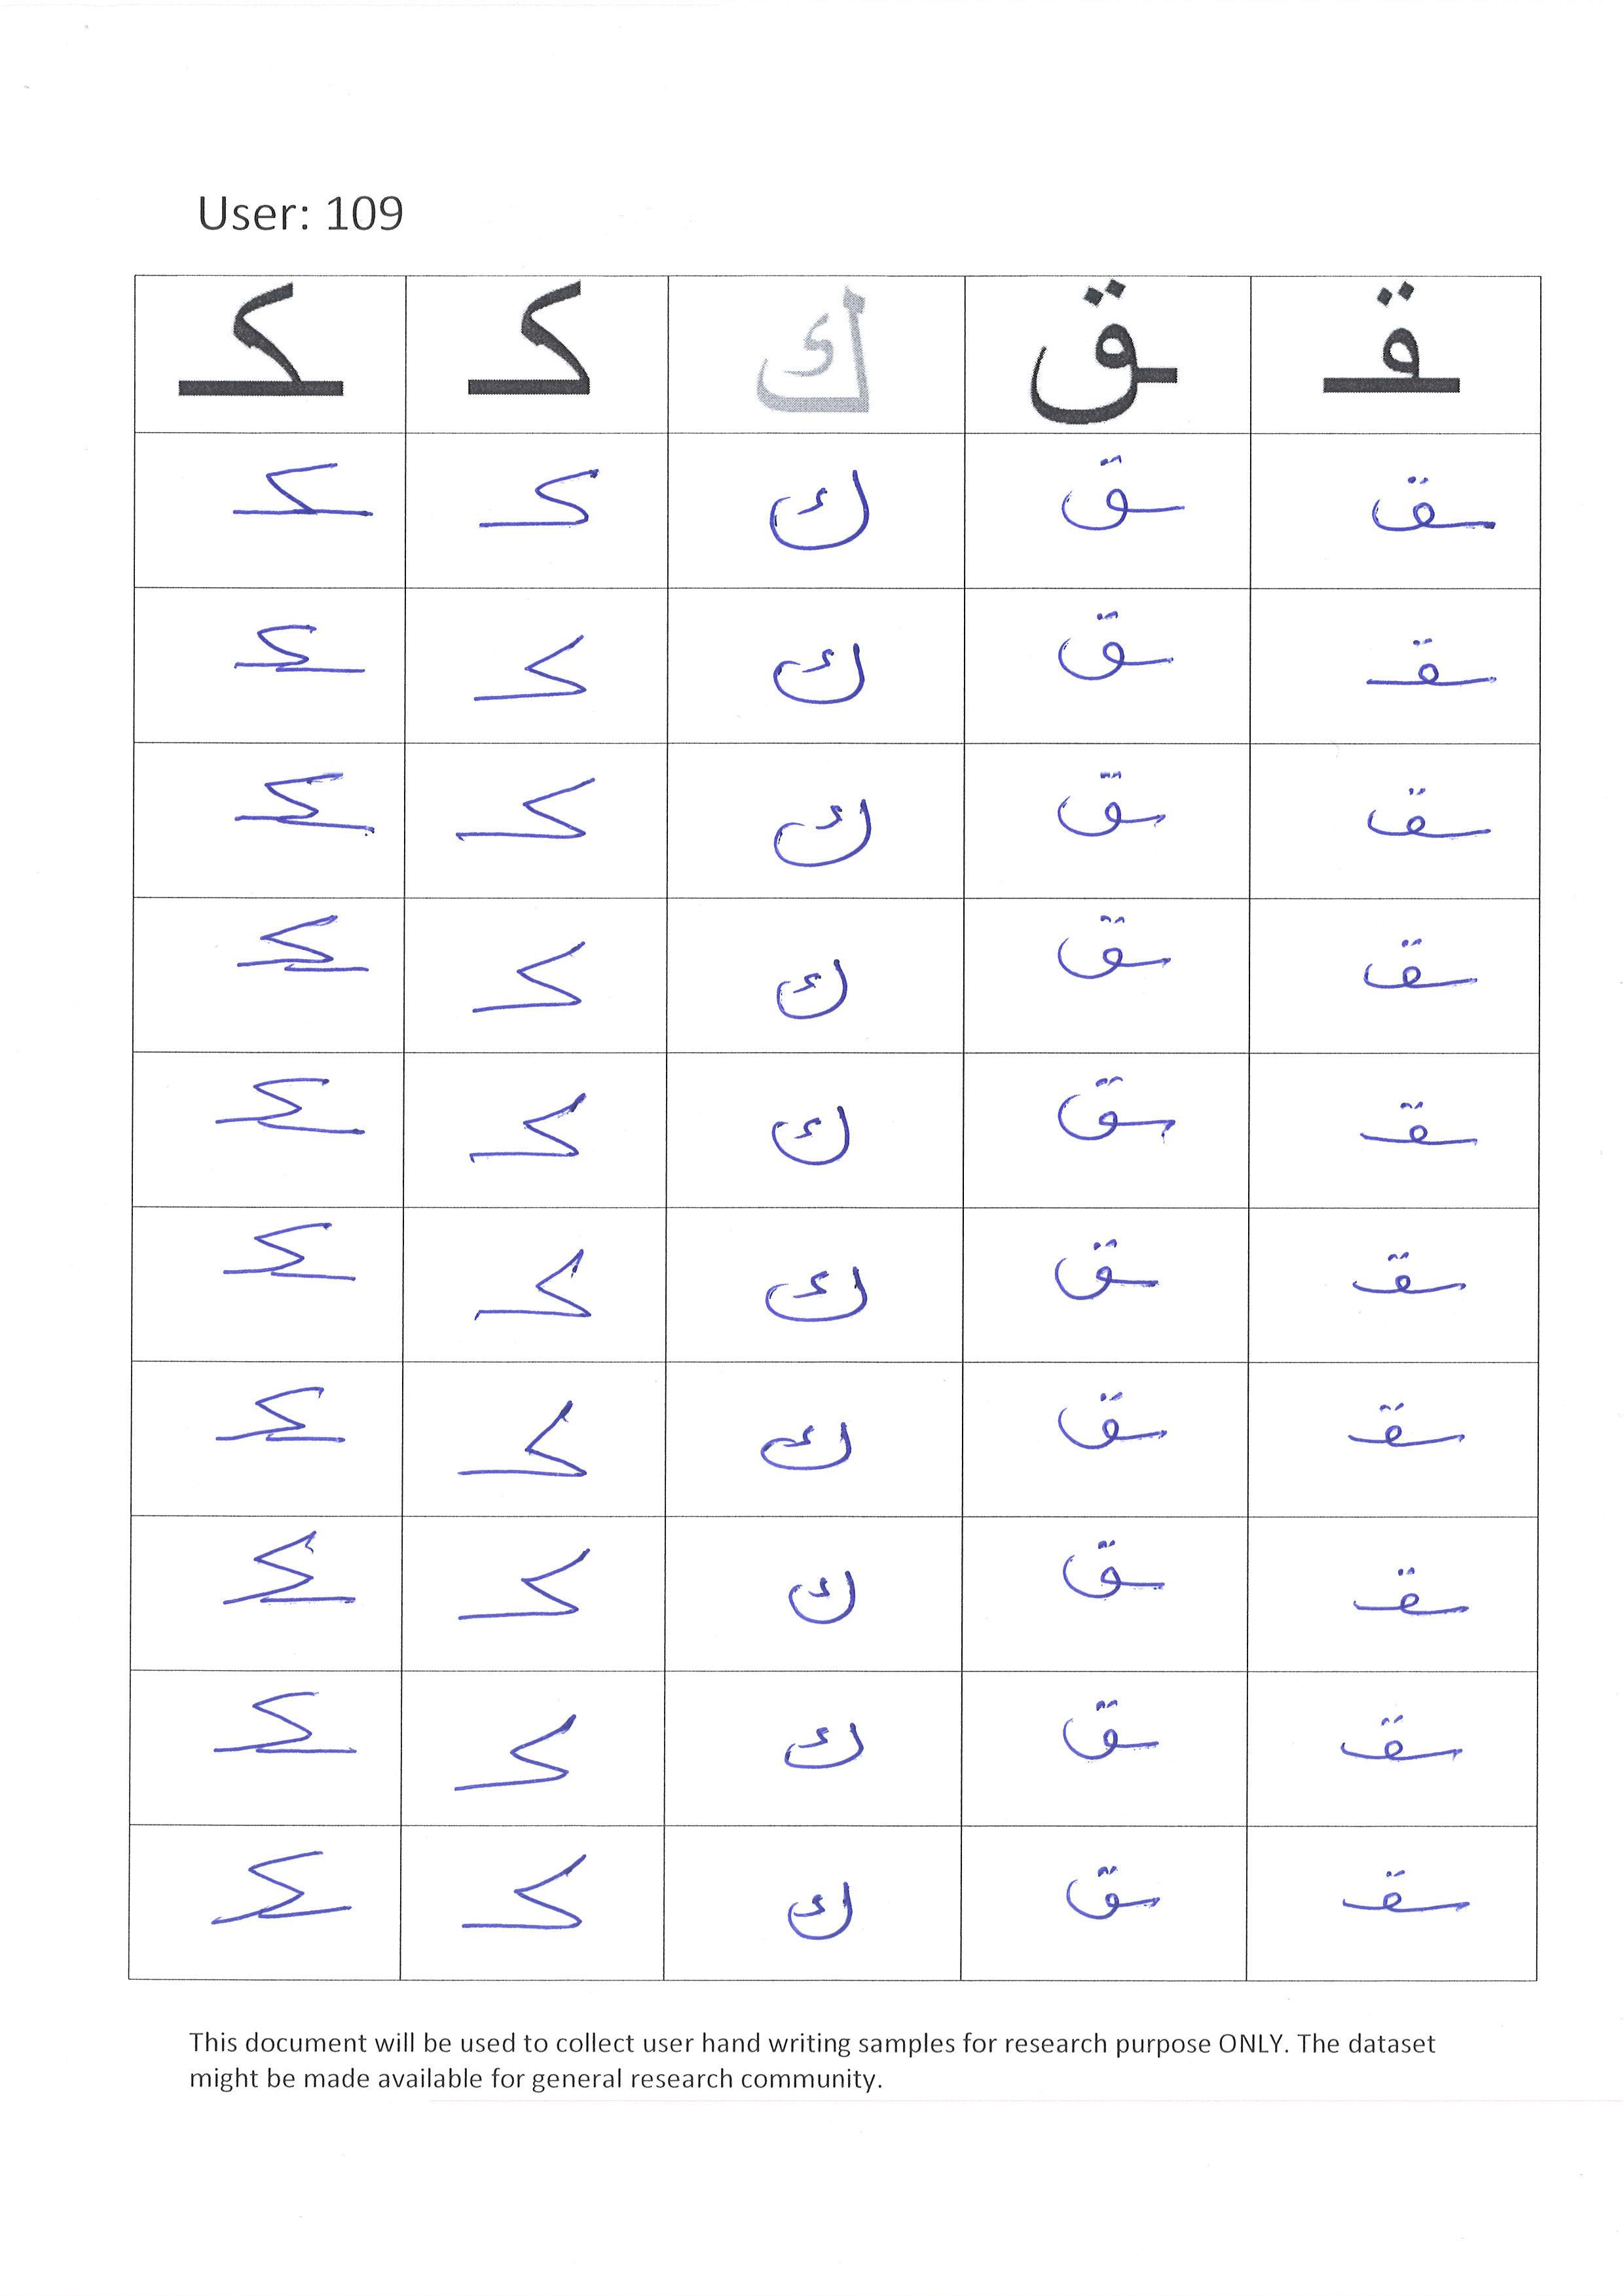 User: 109
ـكـ كـ ك ـق ـقـ
ـكـ كـ ك ـق ـق
ـكـ كـ ك ـق ـقـ
ـكـ كـ ك ـق ـقـ
ـكـ كـ ك ـق ـقـ
ـكـ كـ ك ـق ـقـ
ـكـ كـ ك ـق ـقـ
ـكـ كـ ك ـق ـقـ
ـكـ كـ ك ـق ـقـ
ـكـ كـ ك ـق ـقـ
ـكـ كـ ك ـق ـقـ
This document will be used to collect user hand writing samples for research purpose ONLY. The dataset
might be made available for general research community.